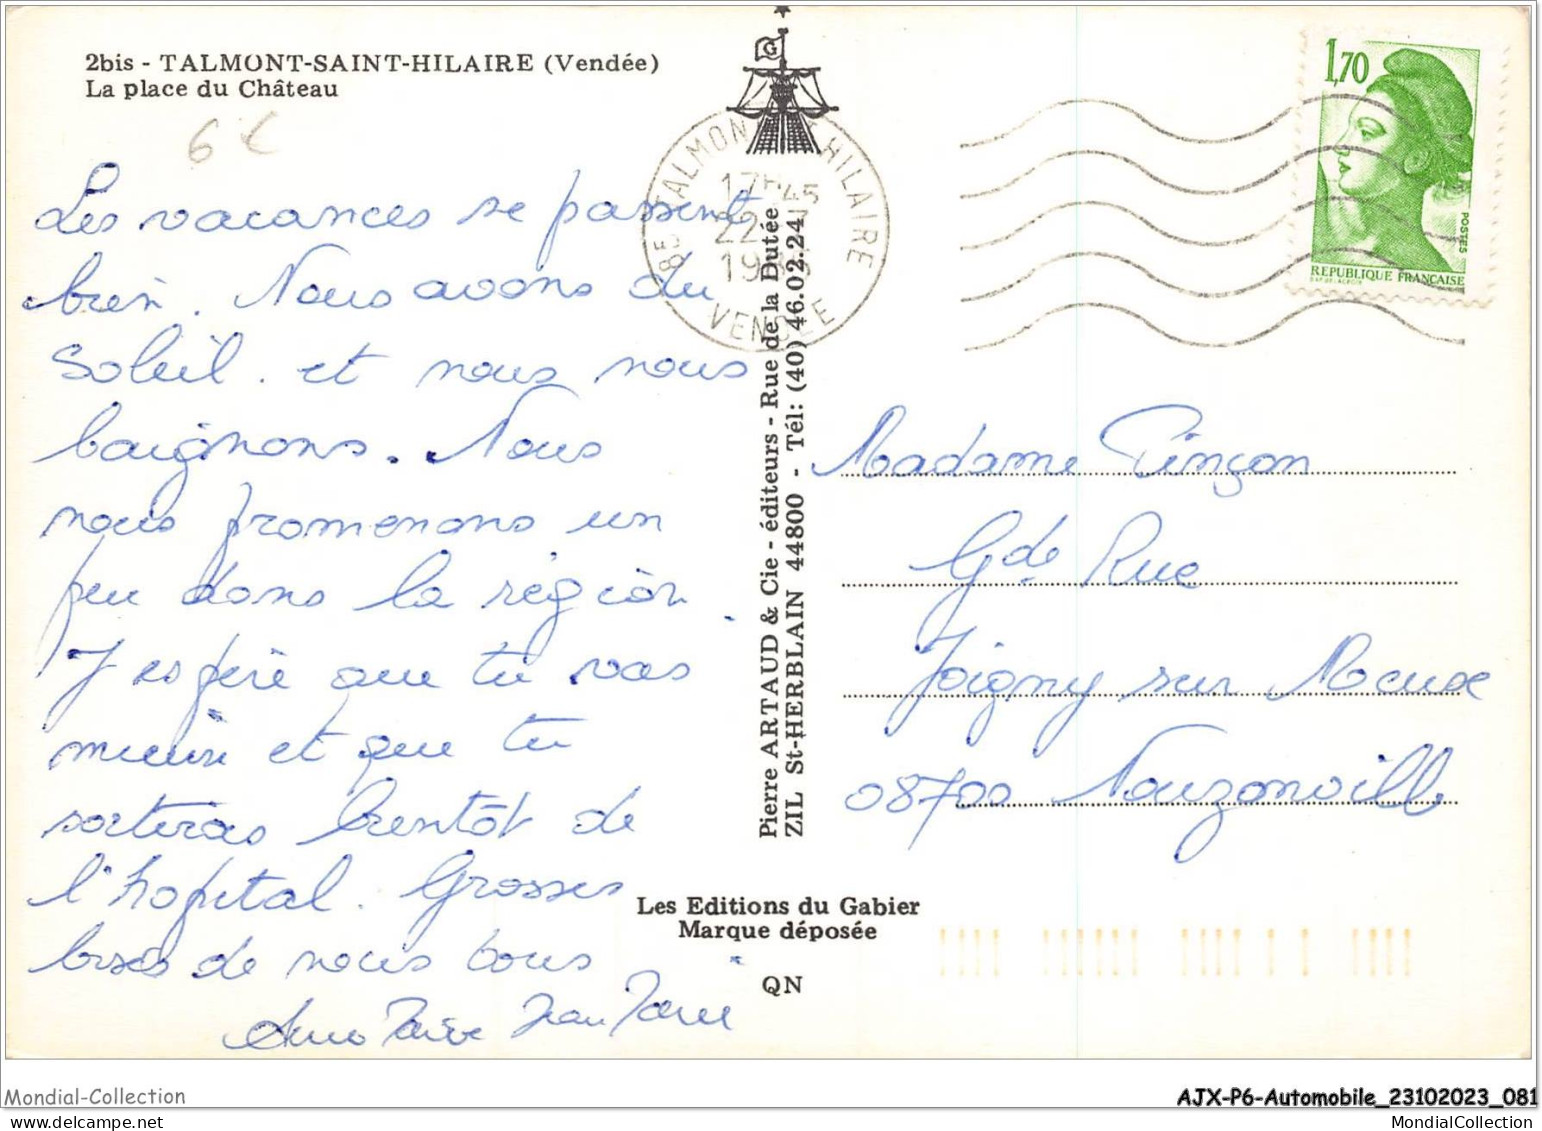 2bis - TALMONT-SAINT-HILAIRE (Vendée)
La place du Château
6€
Les vacances se passent
bien. Nous avons du
Soleil. et nous nous
baignons. Nous
nous promenons un
peu dans la région.
J'espère que tu vas
mieux et que tu
sortiras bientôt de
l'hopital. Grosses
bises de nous tous
Jean
85 TALMONT HILAIRE
17H45
22-7
19
VENDEE
Pierre ARTAUD & Cie - éditeurs - Rue de la Dutée
ZIL St-HERBLAIN 44800 - Tél: (40) 46.02.24
G
1,70
POSTES
REPUBLIQUE FRANÇAISE
Madame Pinçon
Gde Rue
Joigny sur Meuse
08700 Nouzonville
Les Editions du Gabier
Marque déposée
QN
Mondial-Collection
AJX-P6-Automobile_23102023_081
MondialCollection